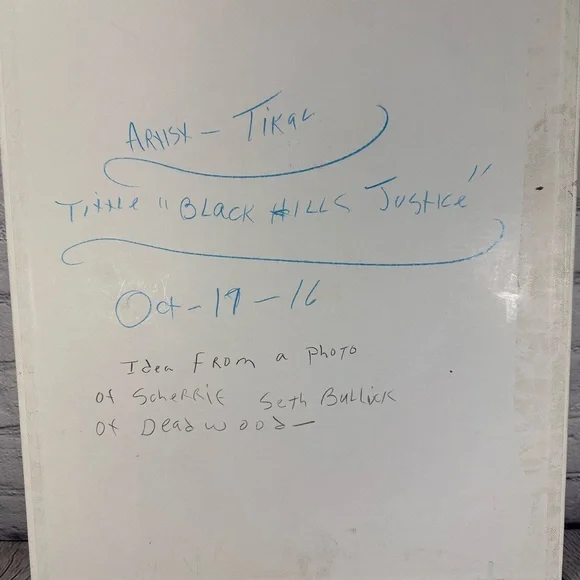 Artist – Tikal
Tittle "Black Hills Justice"
Oct – 19 – 16
Idea From a Photo
of Scherrie Seth Bullick
of Deadwood —